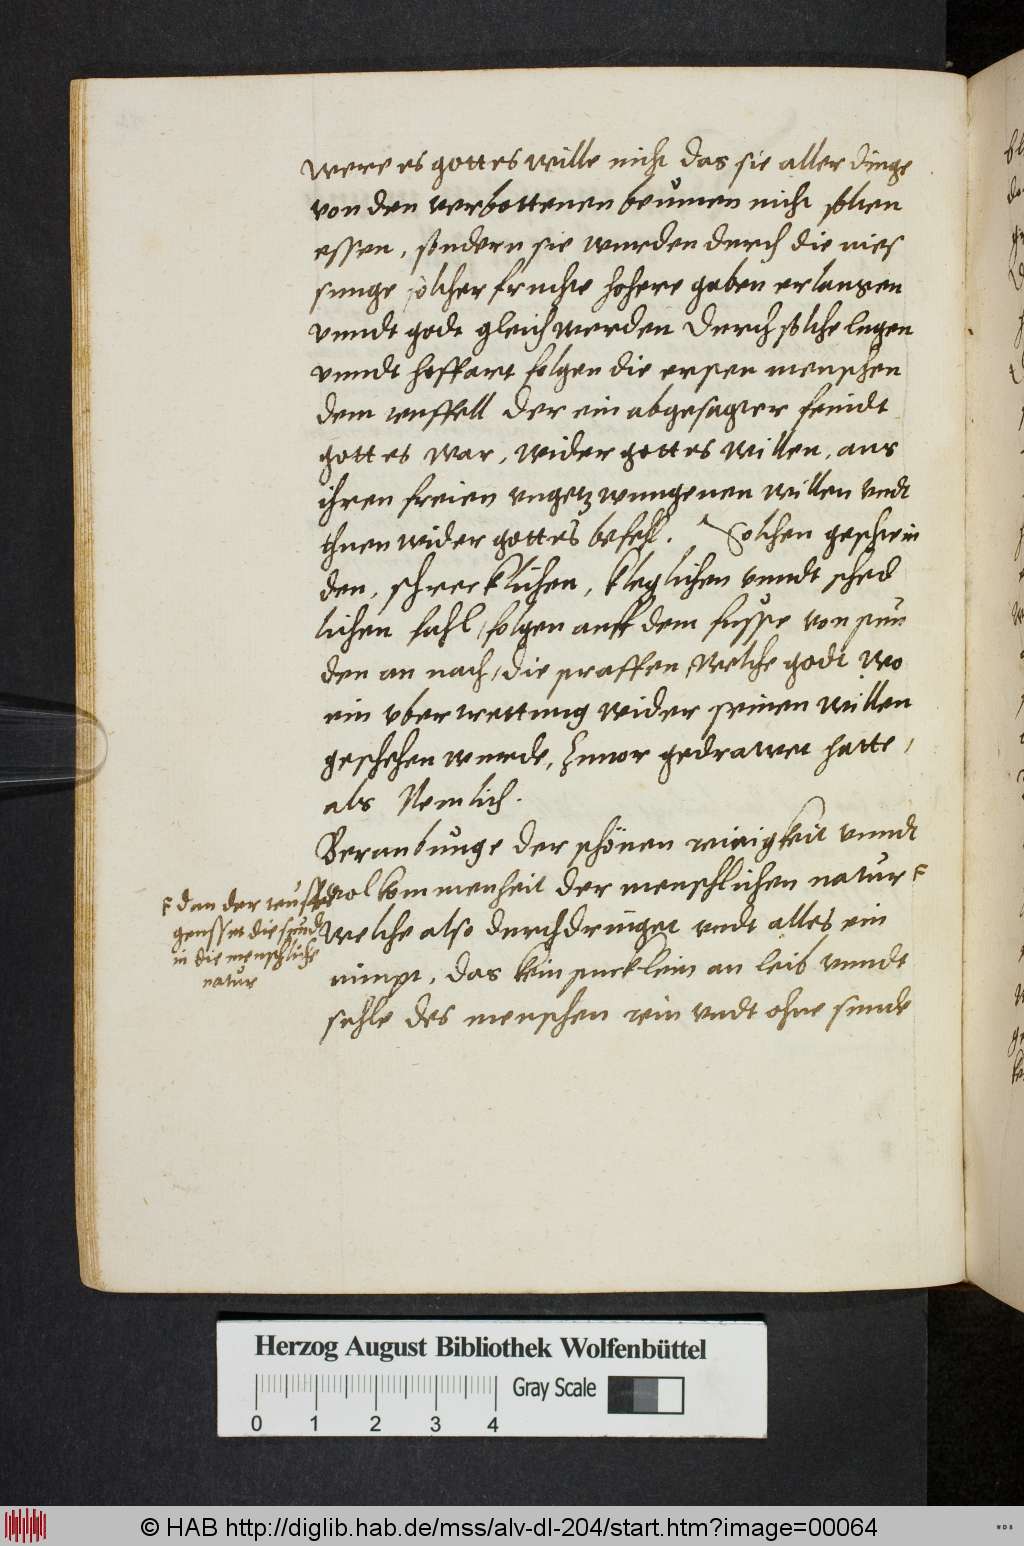 were es gottes wille nicht das sie aller dinge
von den verbottenen beumen nicht solten
essen, sondern sie wurden durch die nies
sunge solcher fruchte hohere gaben erlangen
vnndt godt gleich werden Durch solche lugen
vnndt hoffart folgen die ersten menschen
dem teuffell der ein abgesagter feindt
gottes war, wider gottes willen, aus
ihren freien vngetzwungenen willen vndt
thuen wider gottes befehl. Solchen geschwin
den, schrecklichen, kleglichen vnndt sched
lichen fahl, folgen auff dem fusse von stun
den an nach, die straffen, welche godt wo
ein vbertrettung wider seinen willen
geschehen wurde, zuuor gedrawet hatte,
als Nemlich.
Beraubunge der schönen reinigkeit vnndt
volkommenheit der menschlichen natur
dan der teuffel
geusset die sund
in die menschliche
natur
welche also durchdringet vndt alles ein
nimpt, das kein stucklein an leib vnndt
sehle des menschen rein vndt ohne sunde
Herzog August Bibliothek Wolfenbüttel
Gray Scale
0 1 2 3 4
© HAB http://diglib.hab.de/mss/alv-dl-204/start.htm?image=00064